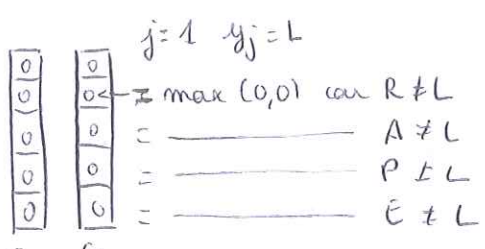 j=1 yj=L
0 0
0 0 ← = max (0,0) car R≠L
0 0 = ——— A≠L
0 0 = ——— P≠L
0 0 = ——— E≠L